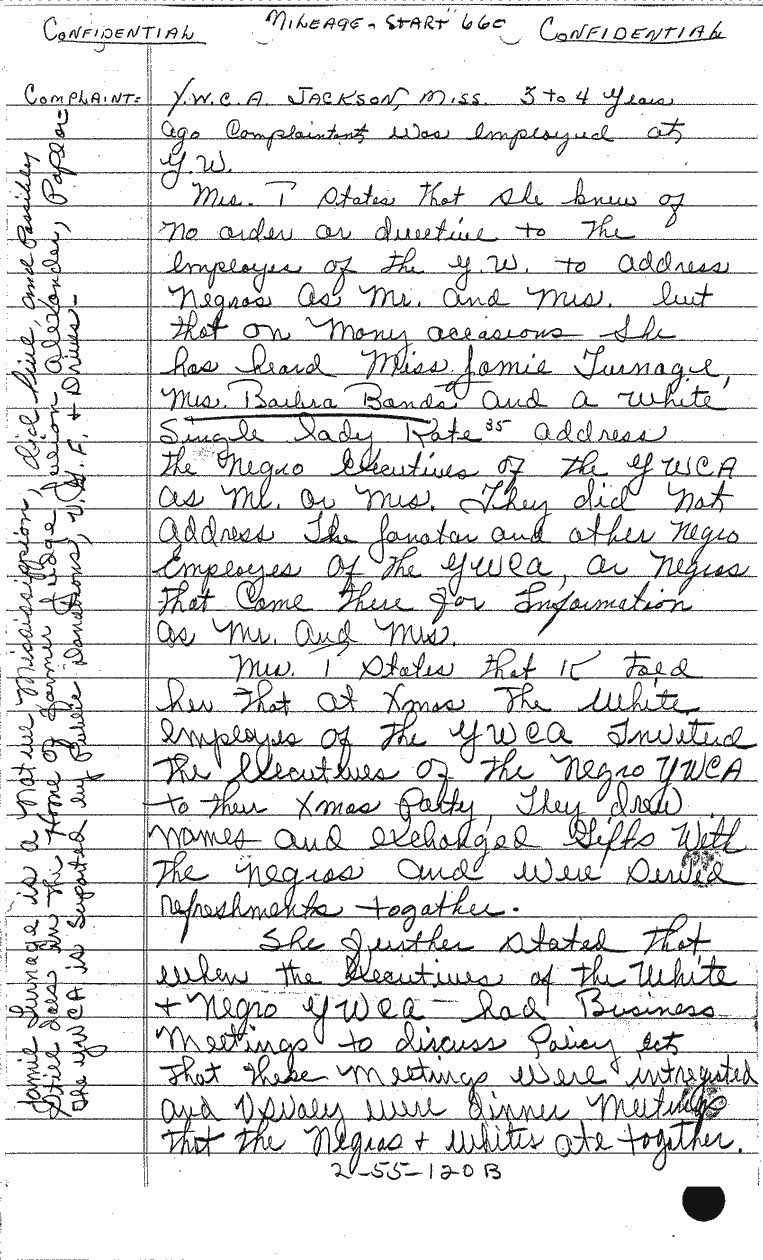 CONFIDENTIAL MILEAGE - START 660 CONFIDENTIAL
COMPLAINT: Y.W.C.A. JACKSON, MISS. 3 to 4 Years
ago Complaintent was employed at
Y.W.
Mrs. T states that she knew of
no order or directive to the
employes of the Y.W. to address
Negros as Mr. and Mrs. but
that on many occasions she
has heard Miss. Jamie Turnage,
Mrs. Barbra Banda and a White
Single lady Kate 35 address
the Negro Executives of the YWCA
as Mr. or Mrs. They did not
address the janator and other Negro
Employes of the YWCA, or Negros
that Come there for Information
as Mr. and Mrs.
Mrs. T states that K told
her that at Xmas the White
employes of the YWCA Invited
the Executives of the Negro YWCA
to their Xmas Party, They drew
names and exchanged Gifts With
the negros and were Served
refreshments togather.
She further stated that
when the Executives of the White
+ Negro YWCA had Business
Meetings to discuss Policy ect
that these meetings were intregated
and Usualy were dinner Meetings
that the Negros + whites ate together.
2-55-120B
Jamie Turnage is a native Mississippian, did live, and Possibley
Still does in the Home of former Judge Julion Alexander, Poplar
The YWCA is Suported by Public Donations, U.G.F. + Drives-